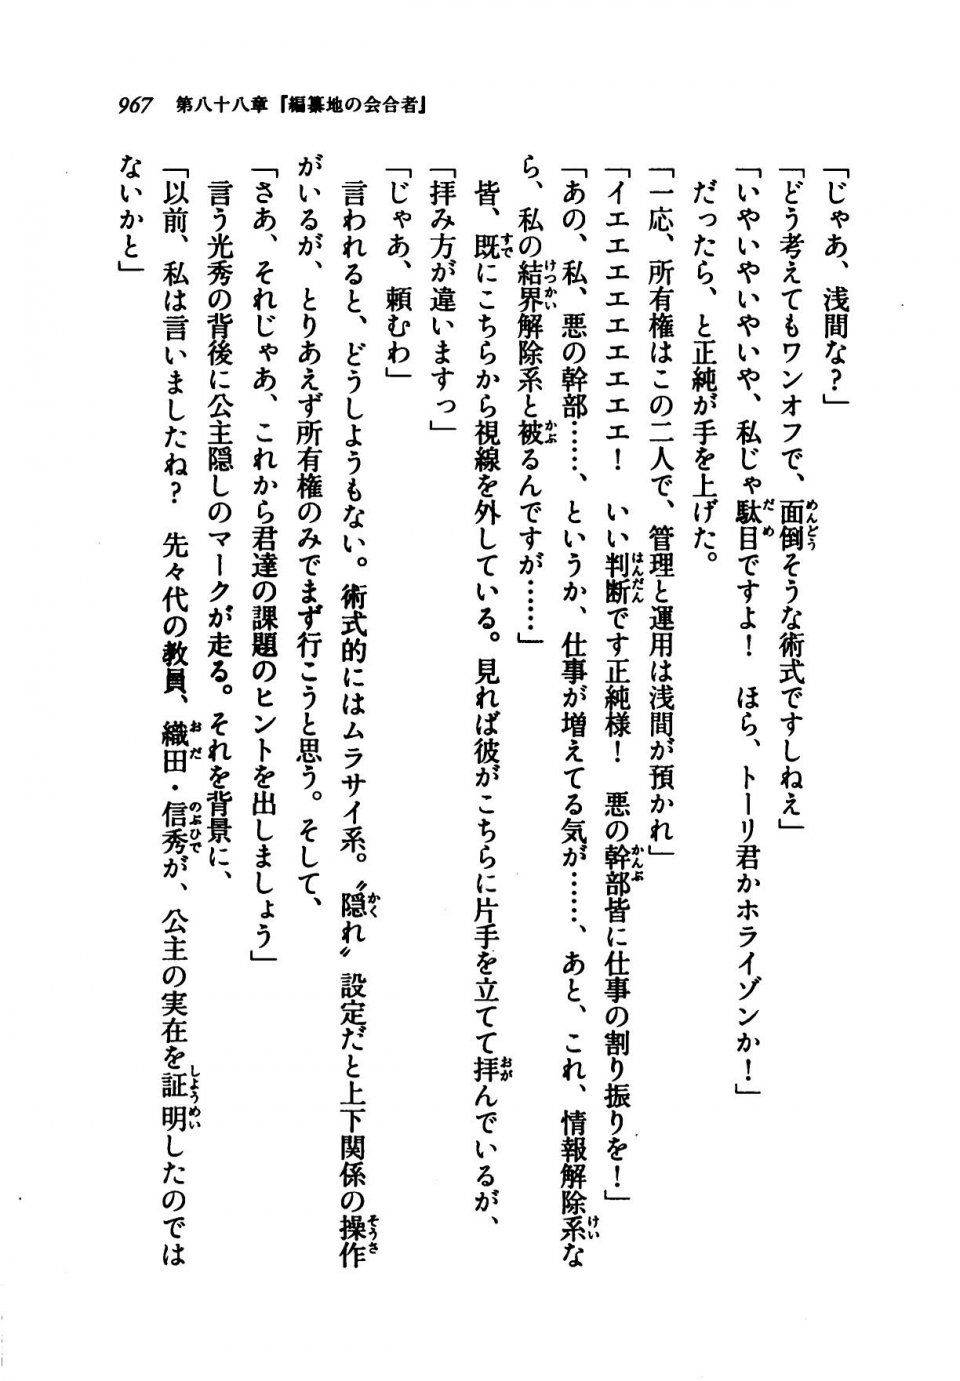 967 第八十八章『編纂地の会合者』
「じゃあ、浅間な?」
「どう考えてもワンオフで、面倒そうな術式ですしねえ」
「いやいやいやいや、私じゃ駄目ですよ! ほら、トーリ君かホライゾンか!」
だったら、と正純が手を上げた。
「一応、所有権はこの二人で、管理と運用は浅間が預かれ」
「イエエエエエエエエ! いい判断です正純様! 悪の幹部皆に仕事の割り振りを!」
「あの、私、悪の幹部……、というか、仕事が増えてる気が……、あと、これ、情報解除系な
ら、私の結界解除系と被るんですが……」
皆、既にこちらから視線を外している。見れば彼がこちらに片手を立てて拝んでいるが、
「拝み方が違いますっ」
「じゃあ、頼むわ」
言われると、どうしようもない。術式的にはムラサイ系。〝隠れ〟設定だと上下関係の操作
がいるが、とりあえず所有権のみでまず行こうと思う。そして、
「さあ、それじゃあ、これから君達の課題のヒントを出しましょう」
言う光秀の背後に公主隠しのマークが走る。それを背景に、
「以前、私は言いましたね? 先々代の教員、織田・信秀が、公主の実在を証明したのでは
ないかと」